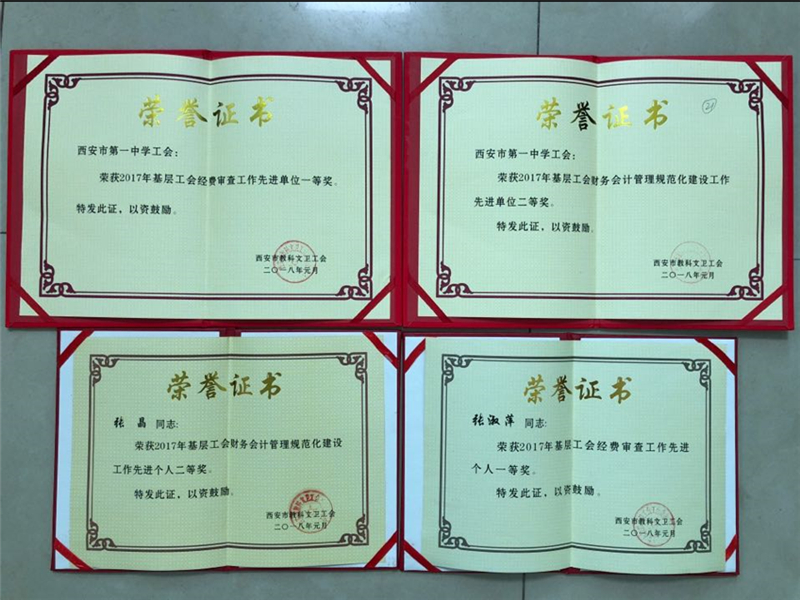 荣誉证书
西安市第一中学工会：
荣获2017年基层工会经费审查工作先进单位一等奖。
特发此证，以资鼓励。
西安市教科文卫工会
二〇一八年元月
荣誉证书
21
西安市第一中学工会：
荣获2017年基层工会财务会计管理规范化建设工作
先进单位二等奖。
特发此证，以资鼓励。
西安市教科文卫工会
二〇一八年元月
荣誉证书
张晶 同志：
荣获2017年基层工会财务会计管理规范化建设
工作先进个人二等奖。
特发此证，以资鼓励。
西安市教科文卫工会
二〇一八年元月
荣誉证书
张淑萍 同志：
荣获2017年基层工会经费审查工作先进
个人一等奖。
特发此证，以资鼓励。
西安市教科文卫工会
二〇一八年元月